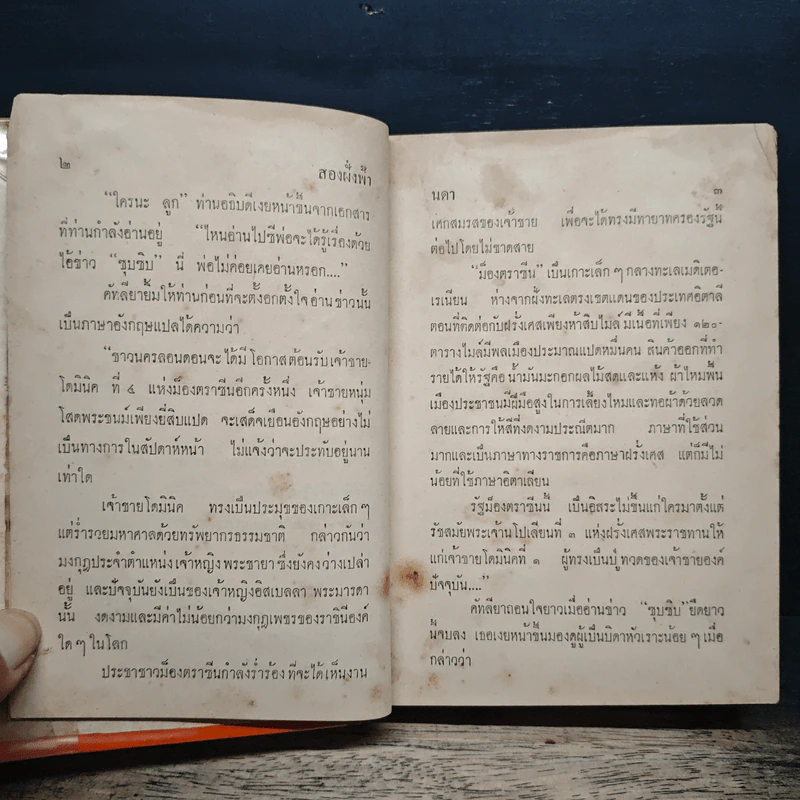 ๒
สองฝั่งฟ้า
“ใครนะ ลูก” ท่านอธิบดีเงยหน้าขึ้นจากเอกสาร
ที่ท่านกำลังอ่านอยู่ “ไหนอ่านไปซีพ่อจะได้รู้เรื่องด้วย
ไอ้ข่าว “ซุบซิบ” นี่ พ่อไม่ค่อยเคยอ่านหรอก....”
คัทลียายิ้มให้ท่านก่อนที่จะตั้งอกตั้งใจอ่านข่าวนั้น
เป็นภาษาอังกฤษแปลได้ความว่า
“ชาวนครลอนดอนจะได้มีโอกาสต้อนรับเจ้าชาย-
โดมินิค ที่ ๔ แห่งม็องตราซีนอีกครั้งหนึ่ง เจ้าชายหนุ่ม
โสดพระชนม์เพียงยี่สิบแปด จะเสด็จเยือนอังกฤษอย่างไม่
เป็นทางการในสัปดาห์หน้า ไม่แจ้งว่าจะประทับอยู่นาน
เท่าใด
เจ้าชายโดมินิค ทรงเป็นประมุขของเกาะเล็กๆ
แต่ร่ำรวยมหาศาลด้วยทรัพยากรธรรมชาติ กล่าวกันว่า
มงกุฎประจำตำแหน่งเจ้าหญิงพระชายา ซึ่งยังคงว่างเปล่า
อยู่ และปัจจุบันยังเป็นของเจ้าหญิงอิสเบลลา พระมารดา
นั้น งดงามและมีค่าไม่น้อยกว่ามงกุฎเพชรของราชินีองค์
ใดๆ ในโลก
ประชาชาวม็องตราซีนกำลังร่ำร้องที่จะได้เห็นงาน
นดา
๓
เศกสมรสของเจ้าชาย เพื่อจะได้ทรงมีทายาทครองรัฐนี้
ต่อไปโดยไม่ขาดสาย
“ม็องตราซีน” เป็นเกาะเล็กๆ กลางทะเลเมดิเตอ-
เรเนียน ห่างจากฝั่งทะเลตรงเขตแดนของประเทศอิตาลี
ตอนที่ติดต่อกับฝรั่งเศสเพียงห้าสิบไมล์ มีเนื้อที่เพียง ๑๒๐-
ตารางไมล์มีพลเมืองประมาณแปดหมื่นคน สินค้าออกที่ทำ
รายได้ให้รัฐคือ น้ำมันมะกอกผลไม้สดและแห้ง ผ้าไหมพื้น
เมืองประชาชนมีผีมือสูงในการเลี้ยงไหมและทอผ้าด้วยลวด
ลายและการให้สีที่งดงามประณีตมาก ภาษาที่ใช้ส่วน
มากและเป็นภาษาทางราชการคือภาษาฝรั่งเศส แต่ก็มีไม่
น้อยที่ใช้ภาษาอิตาเลียน
รัฐม็องตราซีนนี้ เป็นอิสระไม่ขึ้นแก่ใครมาตั้งแต่
รัชสมัยพระเจ้านโปเลียนที่ ๓ แห่งฝรั่งเศสพระราชทานให้
แก่เจ้าชายโดมินิคที่ ๑ ผู้ทรงเป็นปู่ทวดของเจ้าชายองค์
ปัจจุบัน....”
คัทลียาถอนใจยาวเมื่ออ่านข่าว “ซุบซิบ” ยืดยาว
นั้นจบลง เธอเงยหน้าขึ้นมองดูผู้เป็นบิดาหัวเราะน้อยๆ เมื่อ
กล่าวว่า